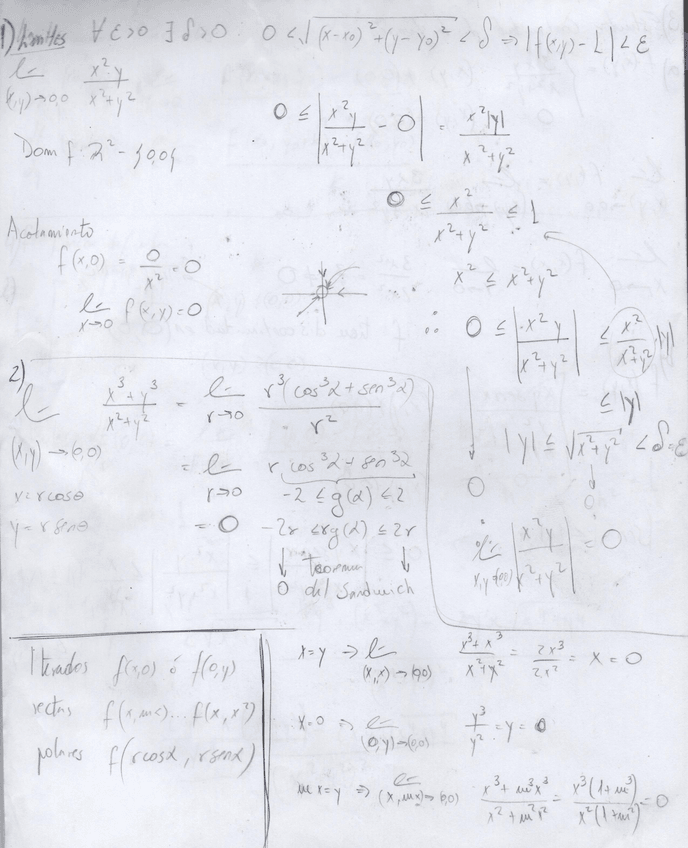 1) Limites ∀ε>0 ∃δ>0 0<√((x-x0)²+(y-y0)²) < δ ⇒ |f(x,y)-L| < ε
lim (x,y)→0,0 x²·y / x²+y²
Dom f: ℝ² - {0,0}
0 ≤ | x²y / x²+y² - 0 | = x²|y| / x²+y²
∴ 0 ≤ x² / x²+y² ≤ 1
x² ≤ x²+y²
Acotamiento
f(x,0) = 0/x² = 0
lim x→0 f(x,y) = 0
∴ 0 ≤ | x²y / x²+y² | ≤ x² / x²+y² |y|
≤ |y|
|y| ≤ √x²+y² < δ = ε
0 0
∴ lim x,y→(0,0) | x²y / x²+y² | = 0
2)
lim (x,y)→(0,0) x³+y³ / x²+y² = lim r→0 r³(cos³α + sen³α) / r²
= lim r→0 r cos³α + sen³α
x=r cosθ
-2 ≤ g(α) ≤ 2
y=r senθ
= 0 -2r ≤ rg(α) ≤ 2r
↓ teorema ↓
0 del Sandwich
Iterados f(x,0) ó f(0,y)
rectas f(x,mx)... f(x,x²)
polares f(rcosα, rsenα)
x=y ⇒ lim (x,x)→(0,0) x³+x³ / x²+y² = 2x³ / 2x² = x = 0
x=0 ⇒ lim (0,y)→(0,0) y³ / y² = y = 0
mx=y ⇒ lim (x,mx)→(0,0) x³+m³x³ / x²+m²x² = x³(1+m³) / x²(1+m²) = 0